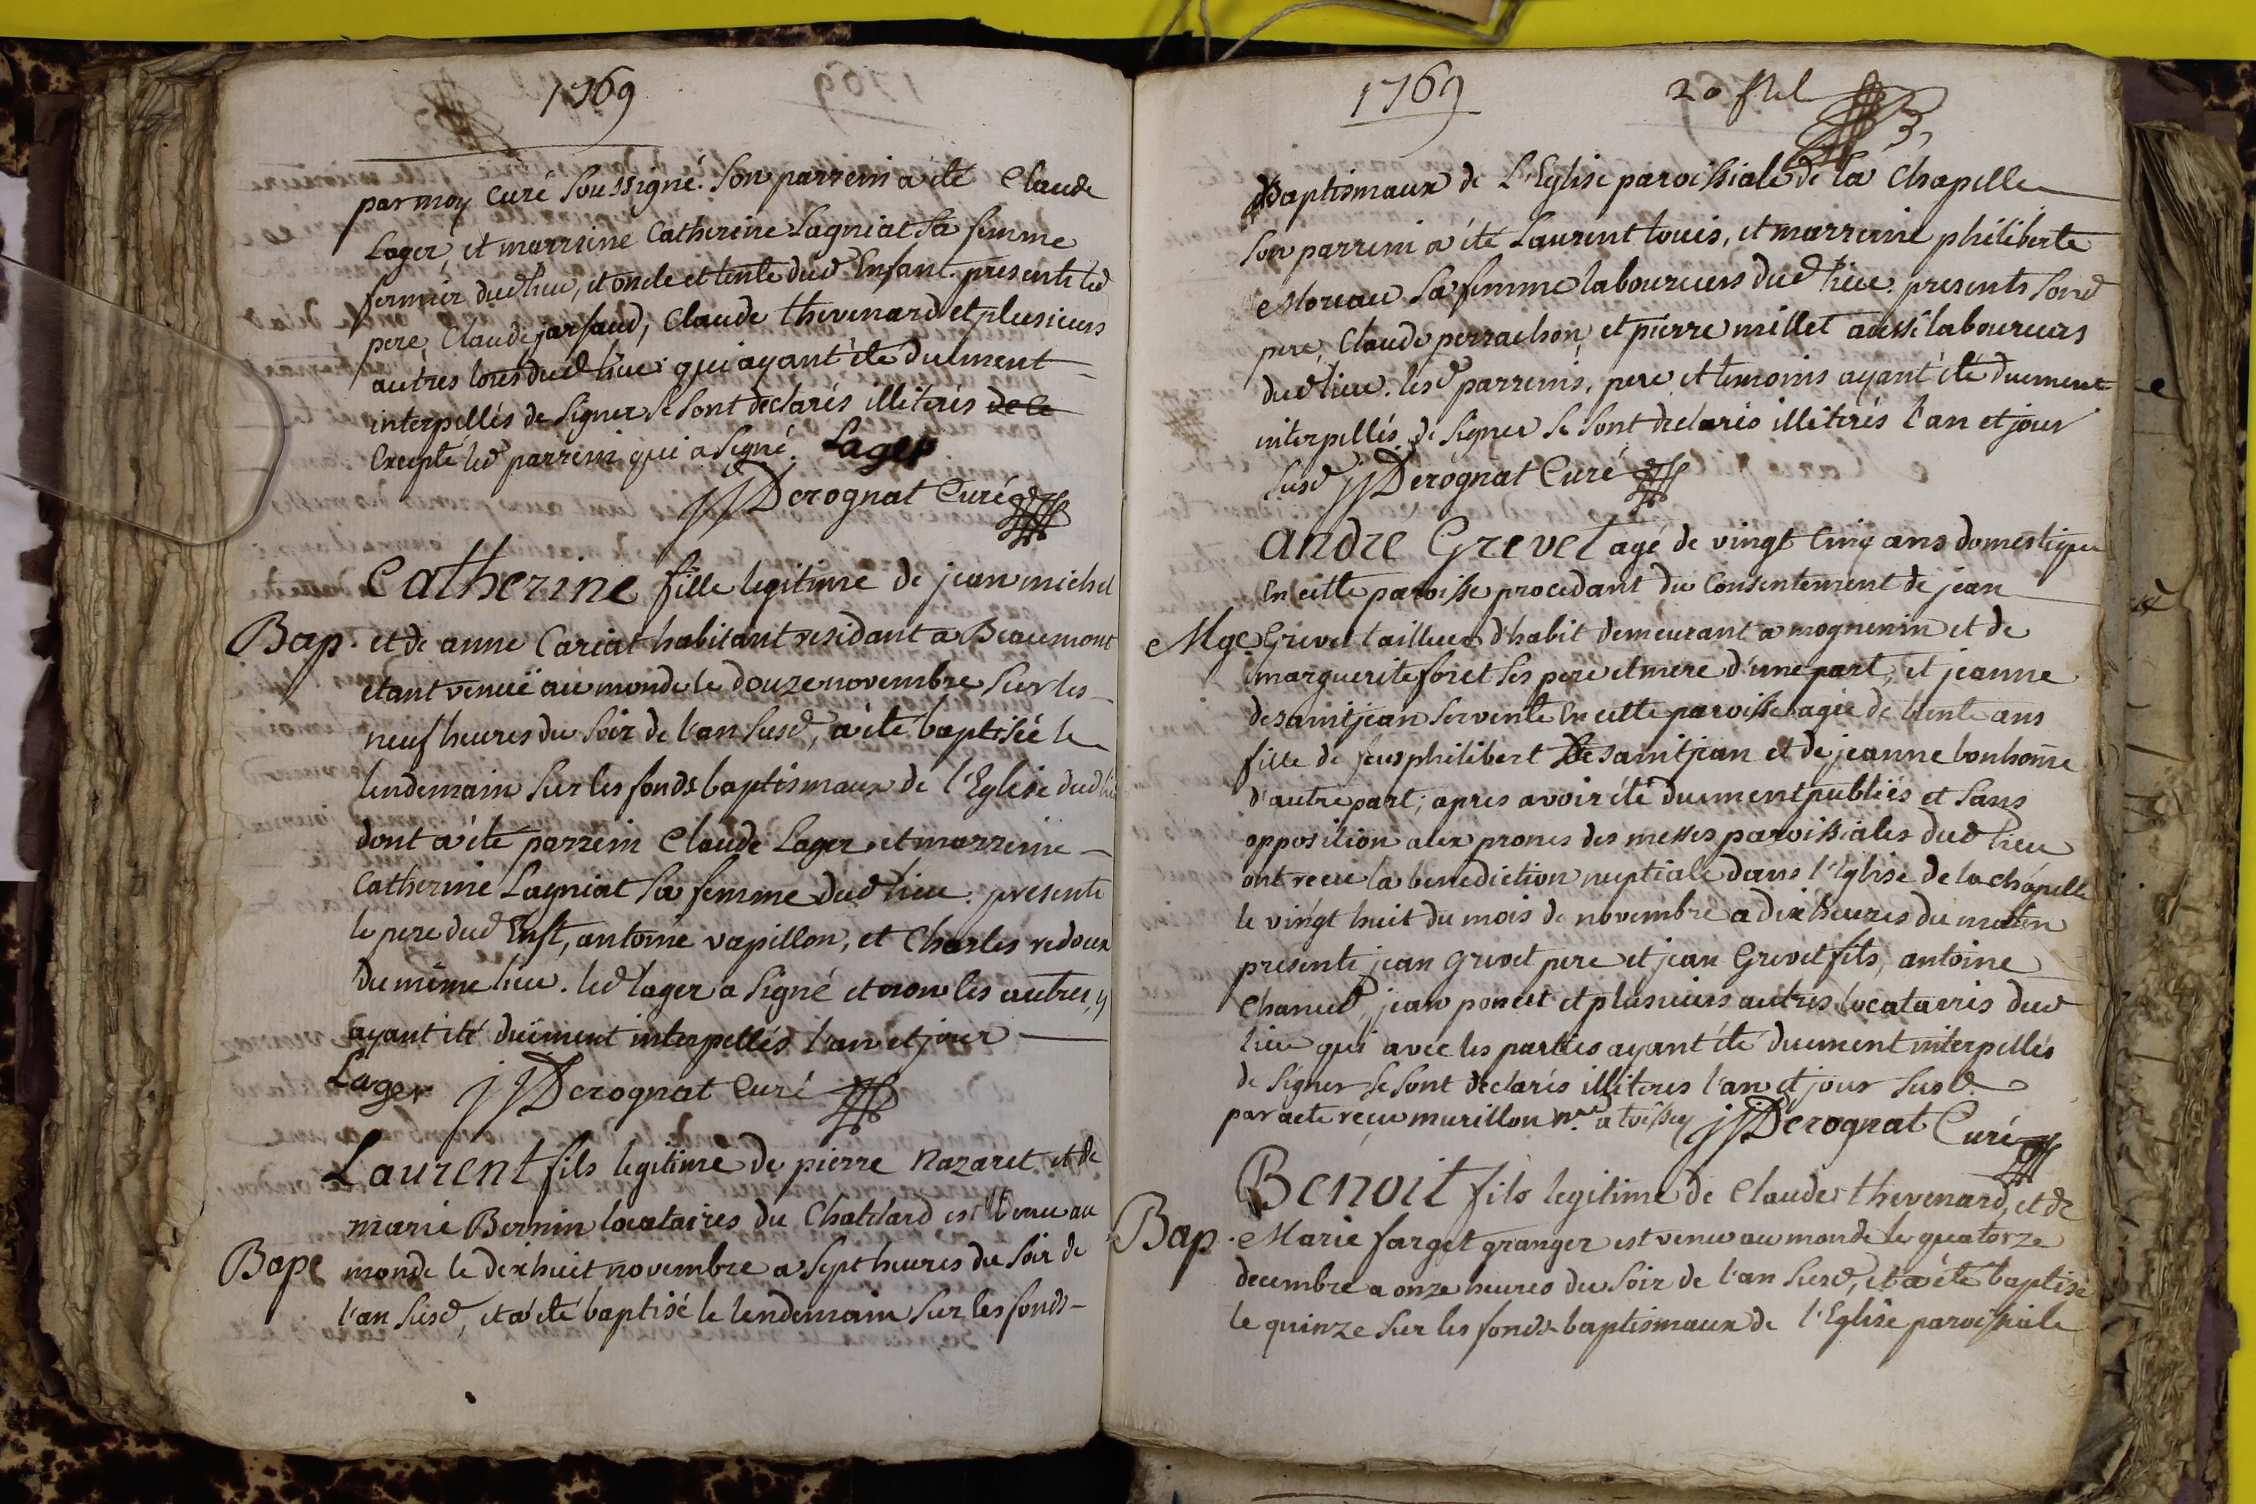 1769
par moy Curé Soussigné. Son parrein a été Claude
Lager, et marreine Catherine Lagniat Sa femme
fermier dud lieu, et oncle et tente dud Enfant. présents led
pere, Claude jarfaud, Claude thevenard et plusieurs
autres tous dud lieu qui ayant été duement
interpellés de Signer Se Sont déclarés illiterés de ce
Excepté led parrein qui a Signé. Lager
jjDerognat Curé
Catherine fille legitime de jean michel
Bap. et de anne Cariat habitant residant a Beaumont
étant venuë au monde le douze novembre Sur les
neuf heures du Soir de l'an Susd, a été baptisée le
lendemain Sur les fonds baptismaux de l'Eglise dud lieu
dont a été parrein Claude Lager et marreine
Catherine Lagniat Sa femme dud lieu. presents
le pere dud Enft, antoine vapillon, et Charles redoux
du même lieu. led lager a Signé et non les autres, y
ayant été duëment interpellés l'an et jour
Lager jjDerognat Curé
Laurent fils legitime de pierre Nazaret et de
marie Bernin locataires du Chatelard est venu au
Bape monde le dixhuit novembre a Sept heures du Soir de
l'an Susd, et a été baptisé le lendemain Sur les fonds
1769 20
Baptismaux de L'Eglise paroissiale de la Chapelle
Son parrein a été Laurent louis, et marreine philiberte
Moreau Sa femme laboureurs dud lieu. presents Sond
pere, Claude perrachon, et pierre millet aussi laboureurs
dud lieu. lesd parreins, pere et temoins ayant été duement
interpellés de Signer Se Sont declarés illiterés l'an et jour
Susd jjDerognat Curé
andré Grevet agé de vingt Cinq ans domestique
En cette paroisse procedant du Consentement de jean
Mge Grevet tailleur d'habit demeurant a mognenin et de
marguerite foret Ses pere et mere d'une part, et jeanne
desaintjean Servente En cette paroisse agée de trente ans
fille de feus philibert Desaintjean et de jeanne bonhome
d'autre part; apres avoir été duement publiés et Sans
opposition aux prones des messes paroissiales dud lieu
ont recu la benediction nuptiale dans l'Eglise de la chapelle
le vingt huit du mois de novembre a dix heures du matin
presents jean grevet pere et jean Grevet fils, antoine
Chanuet, jean poncet et plusieurs autres locataires dud
lieu qui avec les parties ayant été duement interpellés
de Signer Se Sont déclarés illiterés l'an et jour Susd.
par acte reçu murillon nre a toissey jjDerognat Curé
Benoit fils legitime de Claude thevenard, et de
Bap. Marie farget granger est venu au monde le quatorze
decembre a onze heures du Soir de l'an Susd, et a été baptisé
le quinze Sur les fonds baptismaux de l'Eglise paroissiale